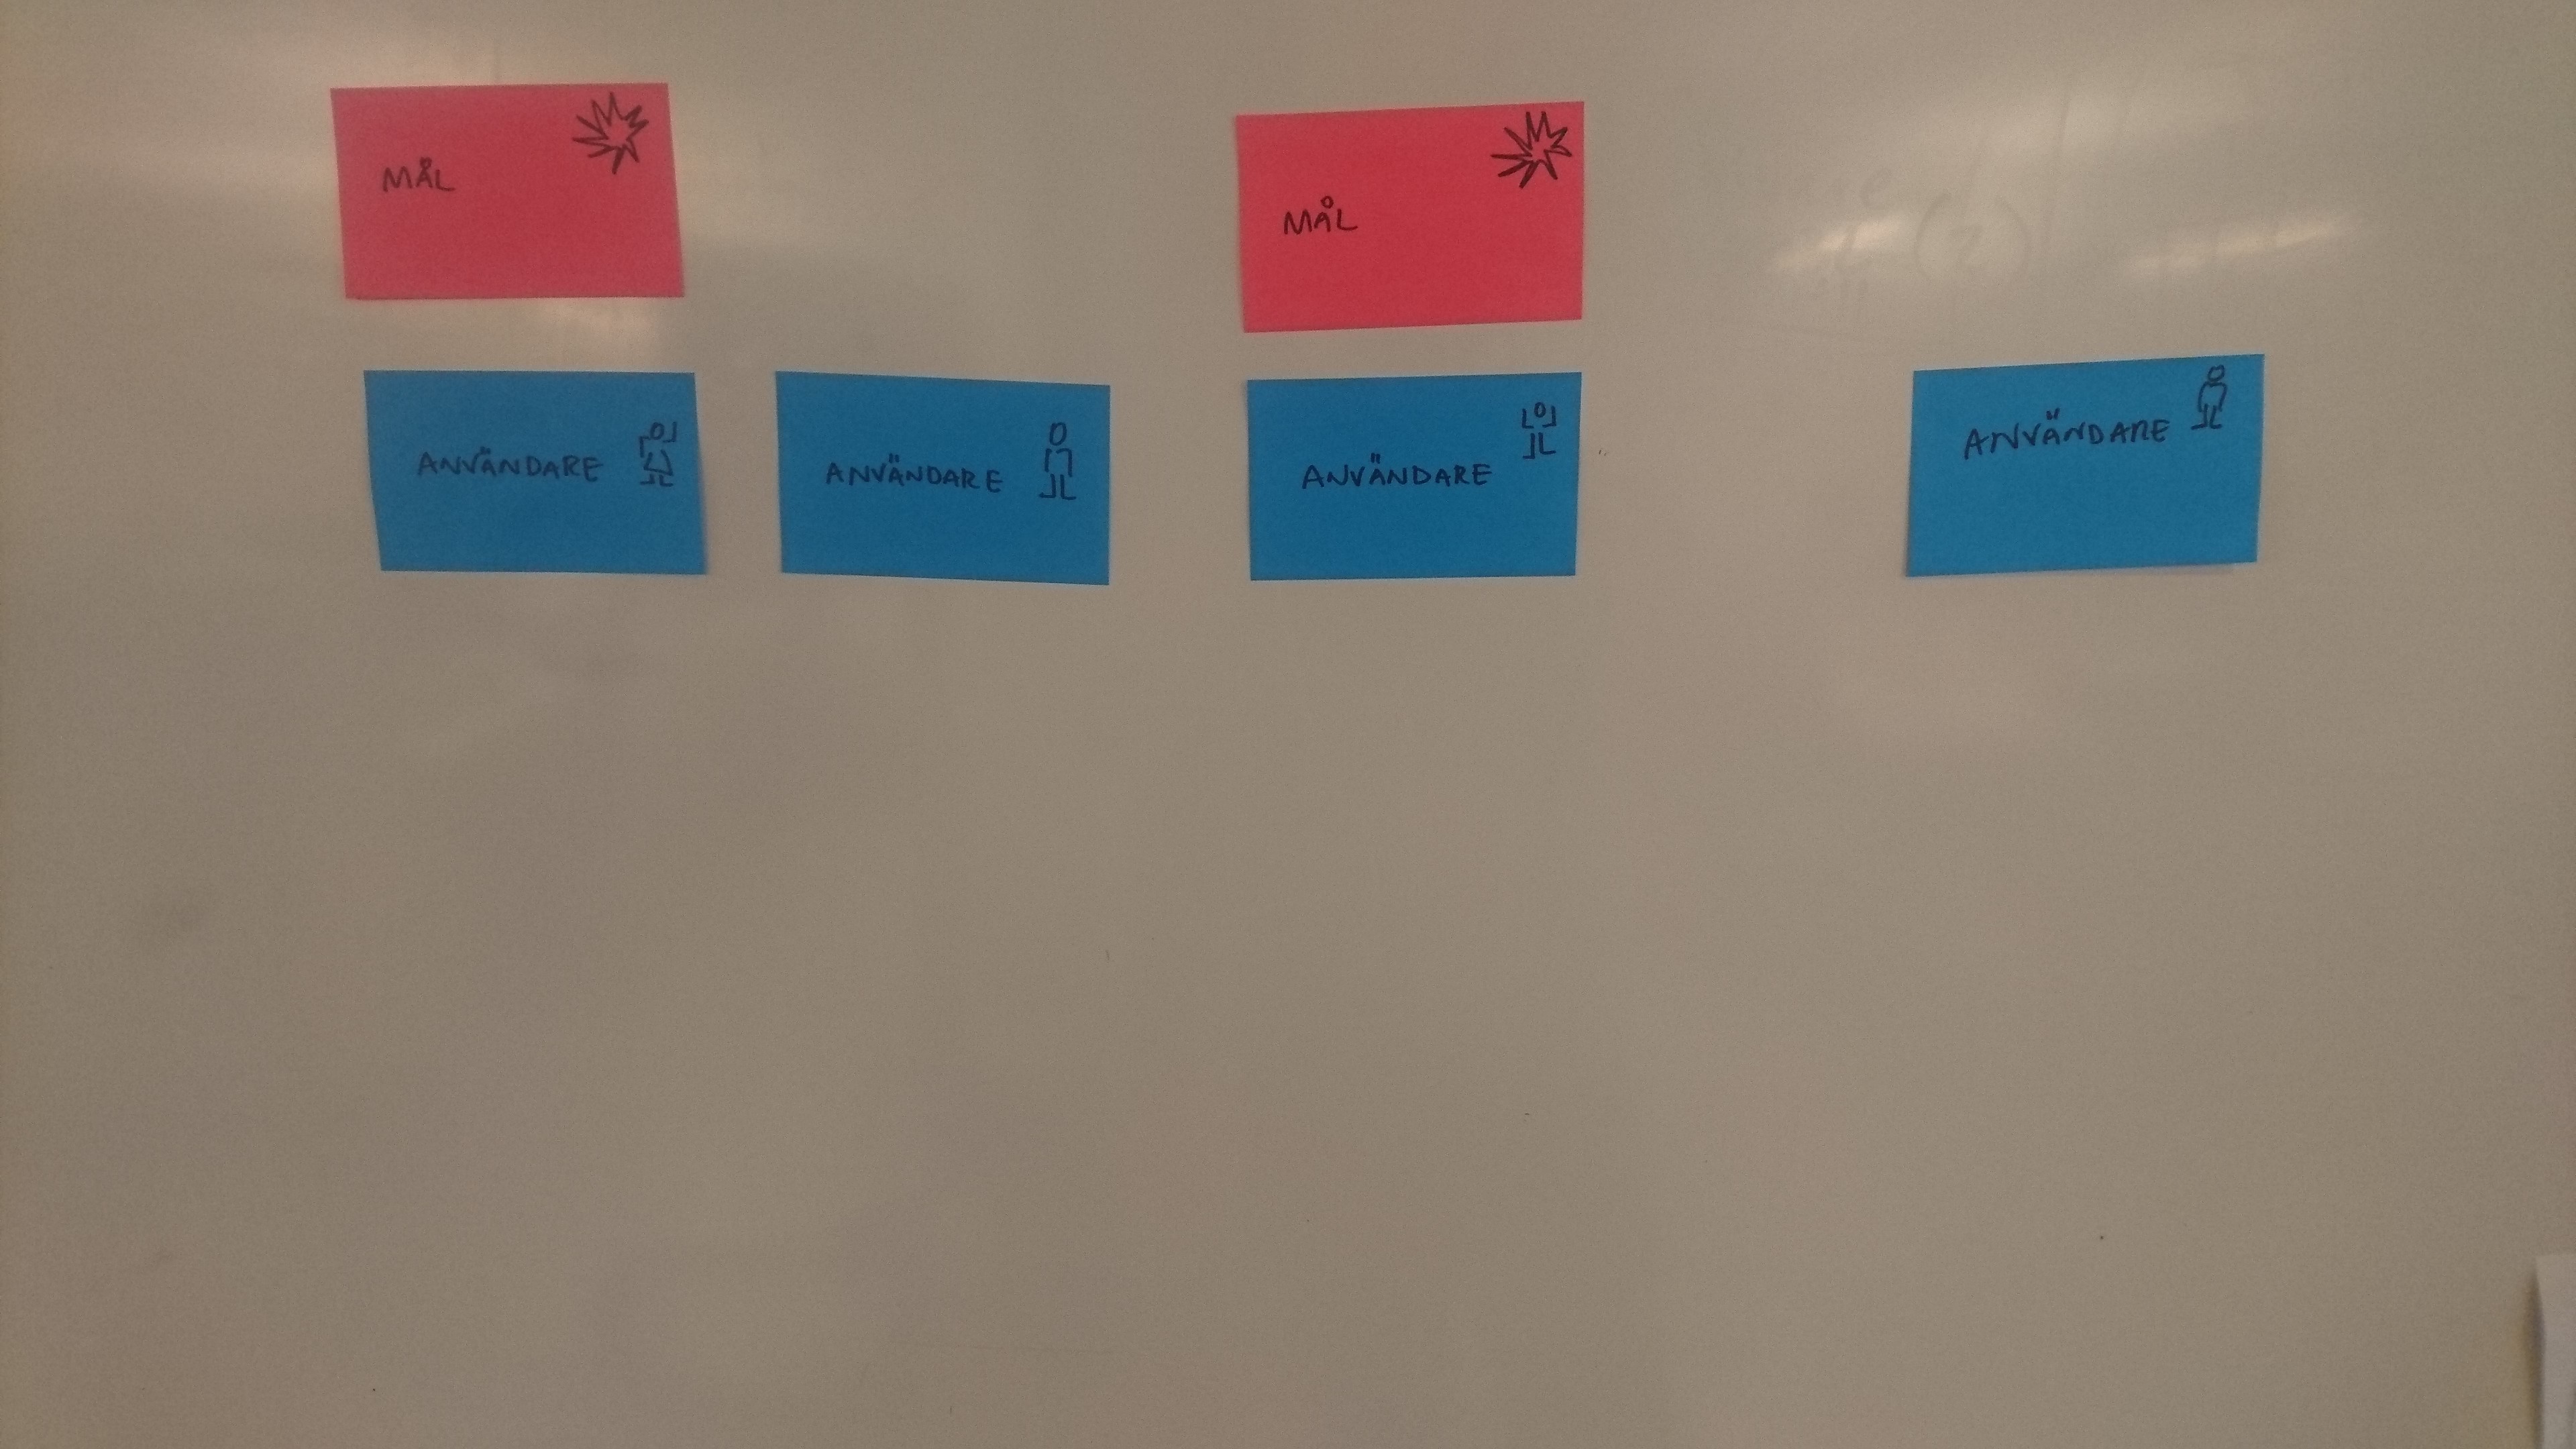 MÅL
MÅL
ANVÄNDARE
ANVÄNDARE
ANVÄNDARE
ANVÄNDARE